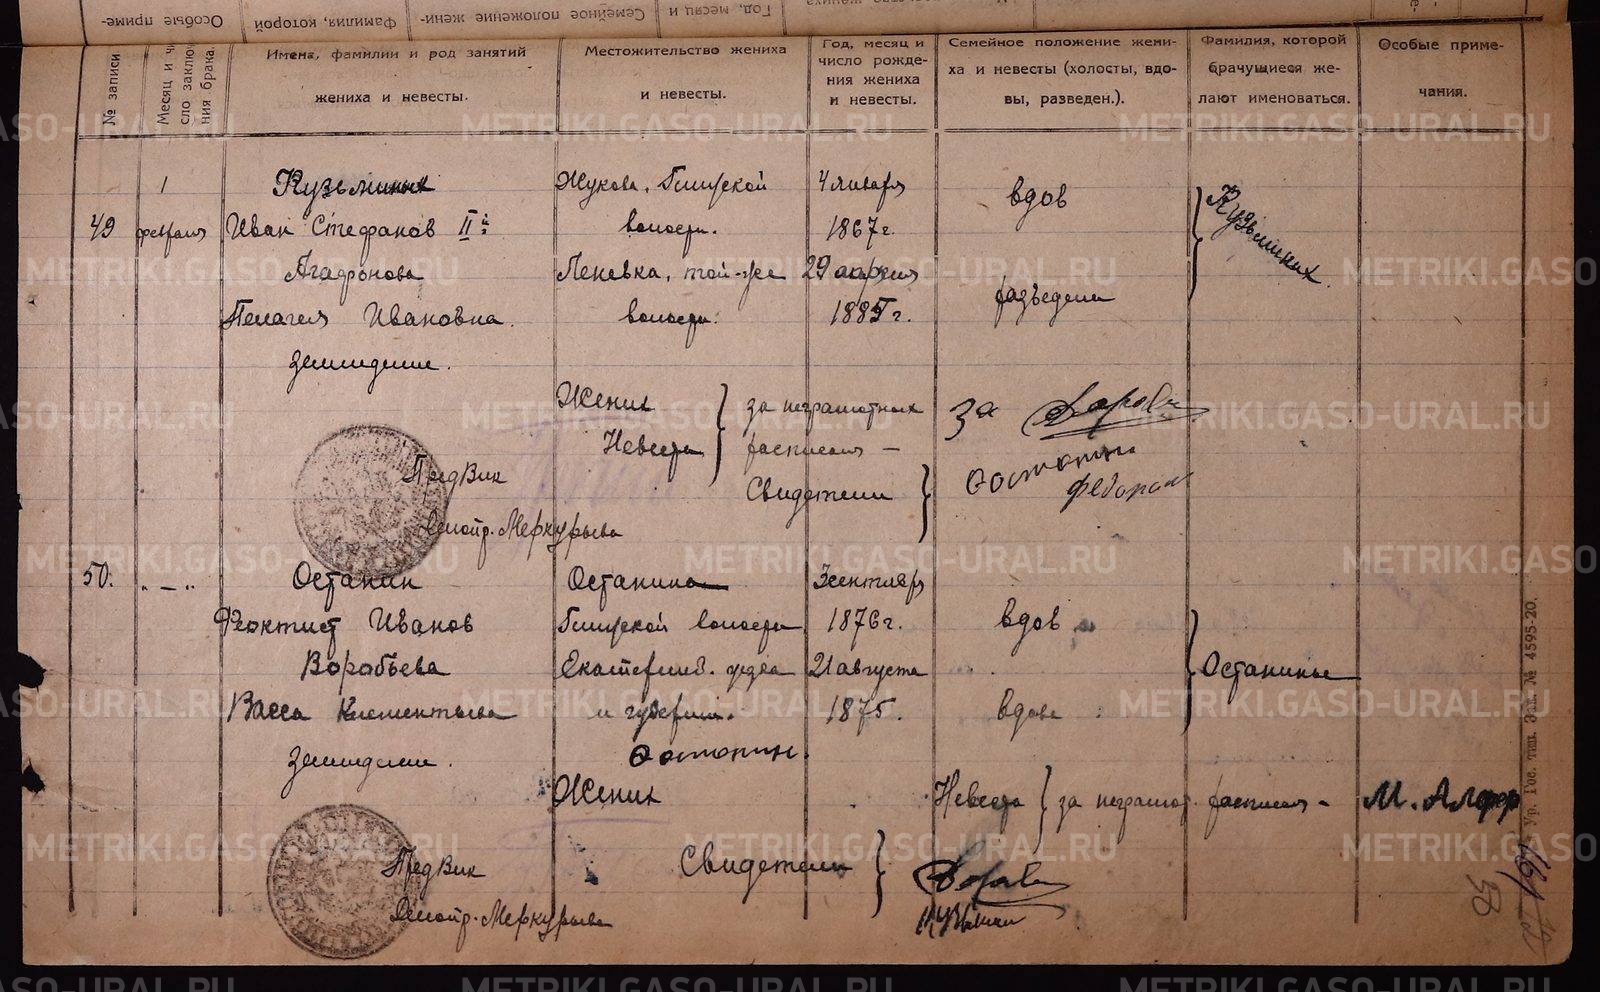 № записи
Месяц и чи-
сло заключе-
ния брака.
Имена, фамилии и род занятий
жениха и невесты.
Местожительство жениха
и невесты.
Год, месяц и
число рожде-
ния жениха
и невесты.
Семейное положение жени-
ха и невесты (холосты, вдо-
вы, разведен.).
Фамилия, которой
брачущиеся же-
лают именоваться.
Особые приме-
чания.
1 Кузьминых Жукова, волости 4 января вдов Кузьминых
49 февраля Иван Стефанов II й волости. 1867 г.
Агафонова Леневка, той-же 29 апреля
Пелагея Ивановна. волости. 1885 г. разведена
земледелие.
Жених за неграмотных за
Невеста расписался —
Свидетели Останин
Федоров
ПредВик
Делопр. Меркурьева
50. „ — „ Останин Останина 3 сентября
Феоктист Иванов волости 1876 г. вдов
Воробьева Екатеринб. уезда 21 августа Останины
Васса Клементьева и губернии. 1875. вдова
земледелие. Останин.
Жених Невеста за неграмот. расписался —
Свидетели
ПредВик
Делопр. Меркурьева
Ур. Гос. тип. Зак. № 4595-20.
METRIKI.GASO-URAL.RU